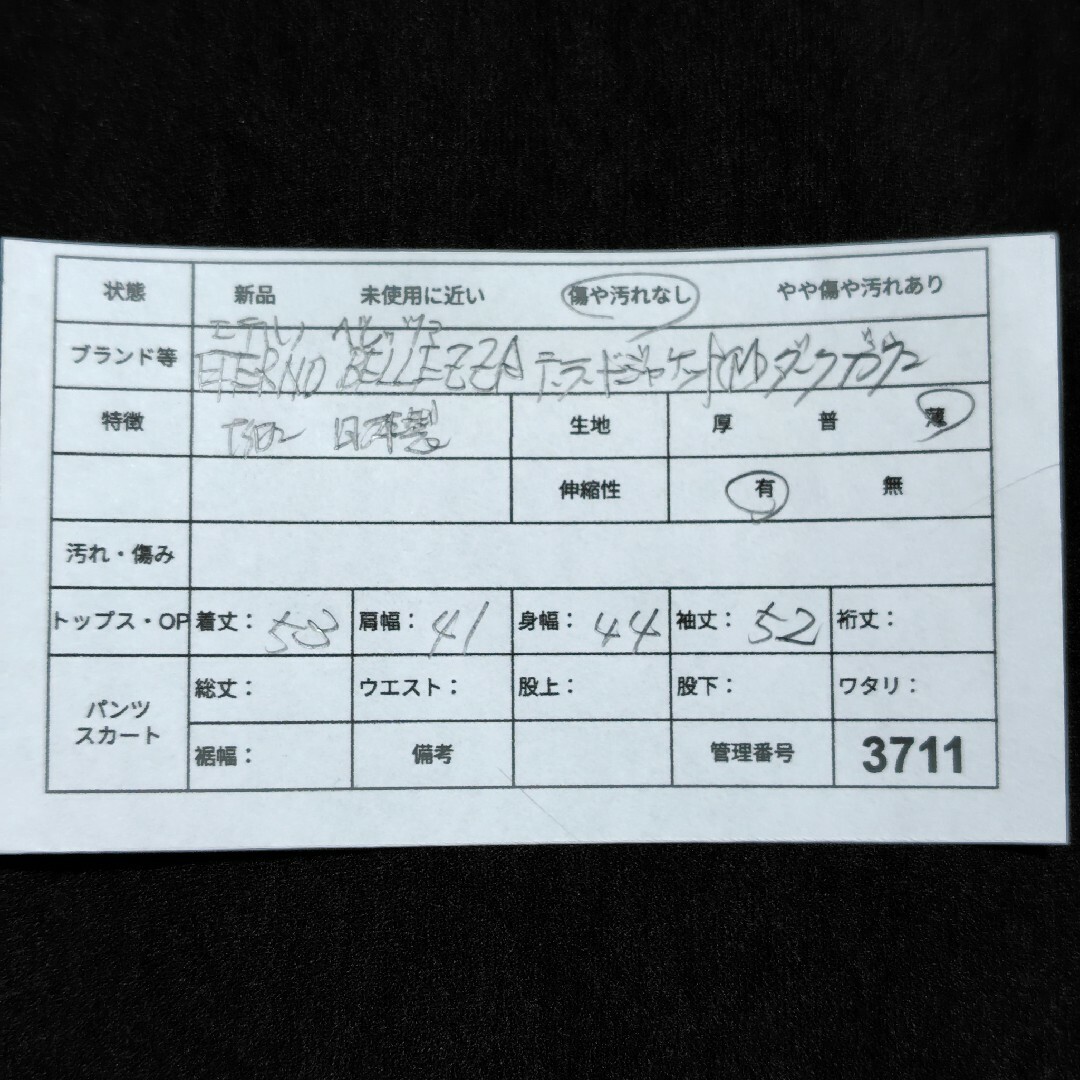 状態 新品 未使用に近い 傷や汚れなし やや傷や汚れあり
ブランド等 ETERNO BELLEZZA テーラードジャケット M ダークブラウン
特徴 日本製 生地 厚 普 薄
伸縮性 有 無
汚れ・傷み
トップス・OP 着丈: 53 肩幅: 41 身幅: 44 袖丈: 52 裄丈:
パンツ スカート 総丈: ウエスト: 股上: 股下: ワタリ:
裾幅: 備考 管理番号 3711